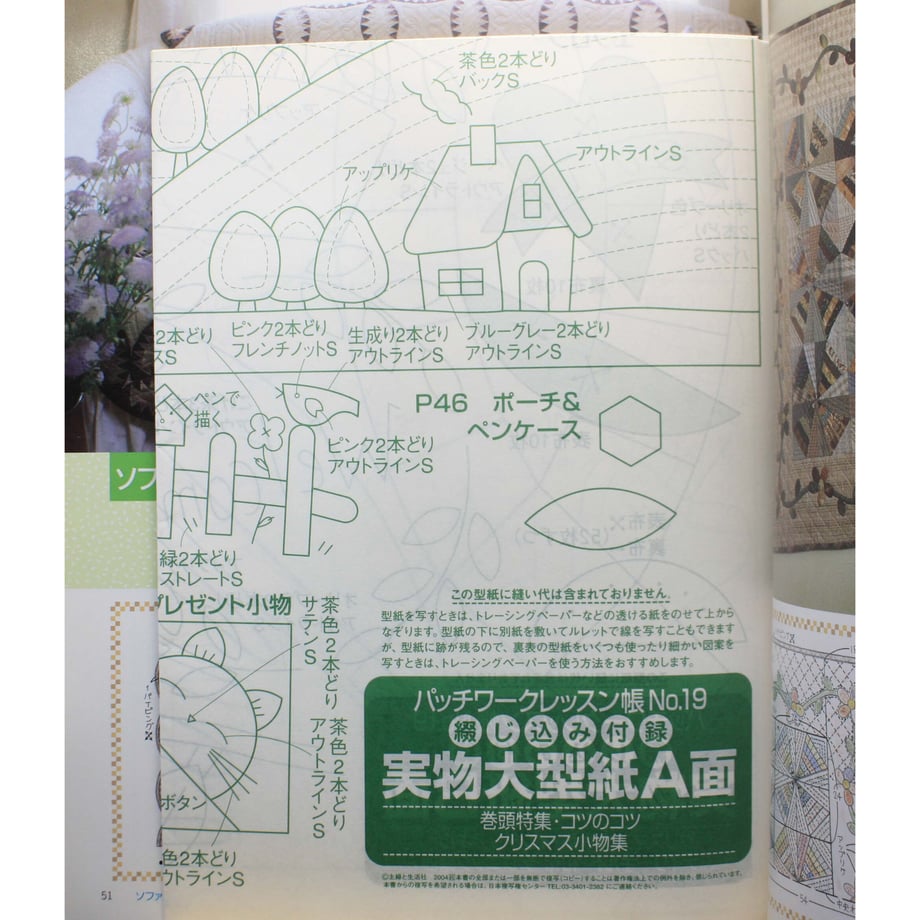 茶色2本どり
バックS
アウトラインS
アップリケ
2本どり
ピンク2本どり
フレンチノットS
生成り2本どり
アウトラインS
ブルーグレー2本どり
アウトラインS
ペンで
描く
P46 ポーチ&
ペンケース
ピンク2本どり
アウトラインS
緑2本どり
ストレートS
プレゼント小物
茶色2本どり
サテンS
茶色2本どり
アウトラインS
ボタン
色2本どり
ウトラインS
この型紙に縫い代は含まれておりません。
型紙を写すときは、トレーシングペーパーなどの透ける紙をのせて上から
なぞります。型紙の下に別紙を敷いてルレットで線を写すこともできます
が、型紙に跡が残るので、裏表の型紙をいくつも使ったり細かい図案を
写すときは、トレーシングペーパーを使う方法をおすすめします。
パッチワークレッスン帳No.19
綴じ込み付録
実物大型紙A面
巻頭特集・コツのコツ
クリスマス小物集
©主婦と生活社 2004 本書の全部または一部を無断で複写(コピー)することは著作権法上での例外を除き、禁じられています。
本書からの複写を希望される場合は、日本複写権センターTEL:03-3401-2382にご連絡ください。
ソフ
51
ソファ
54